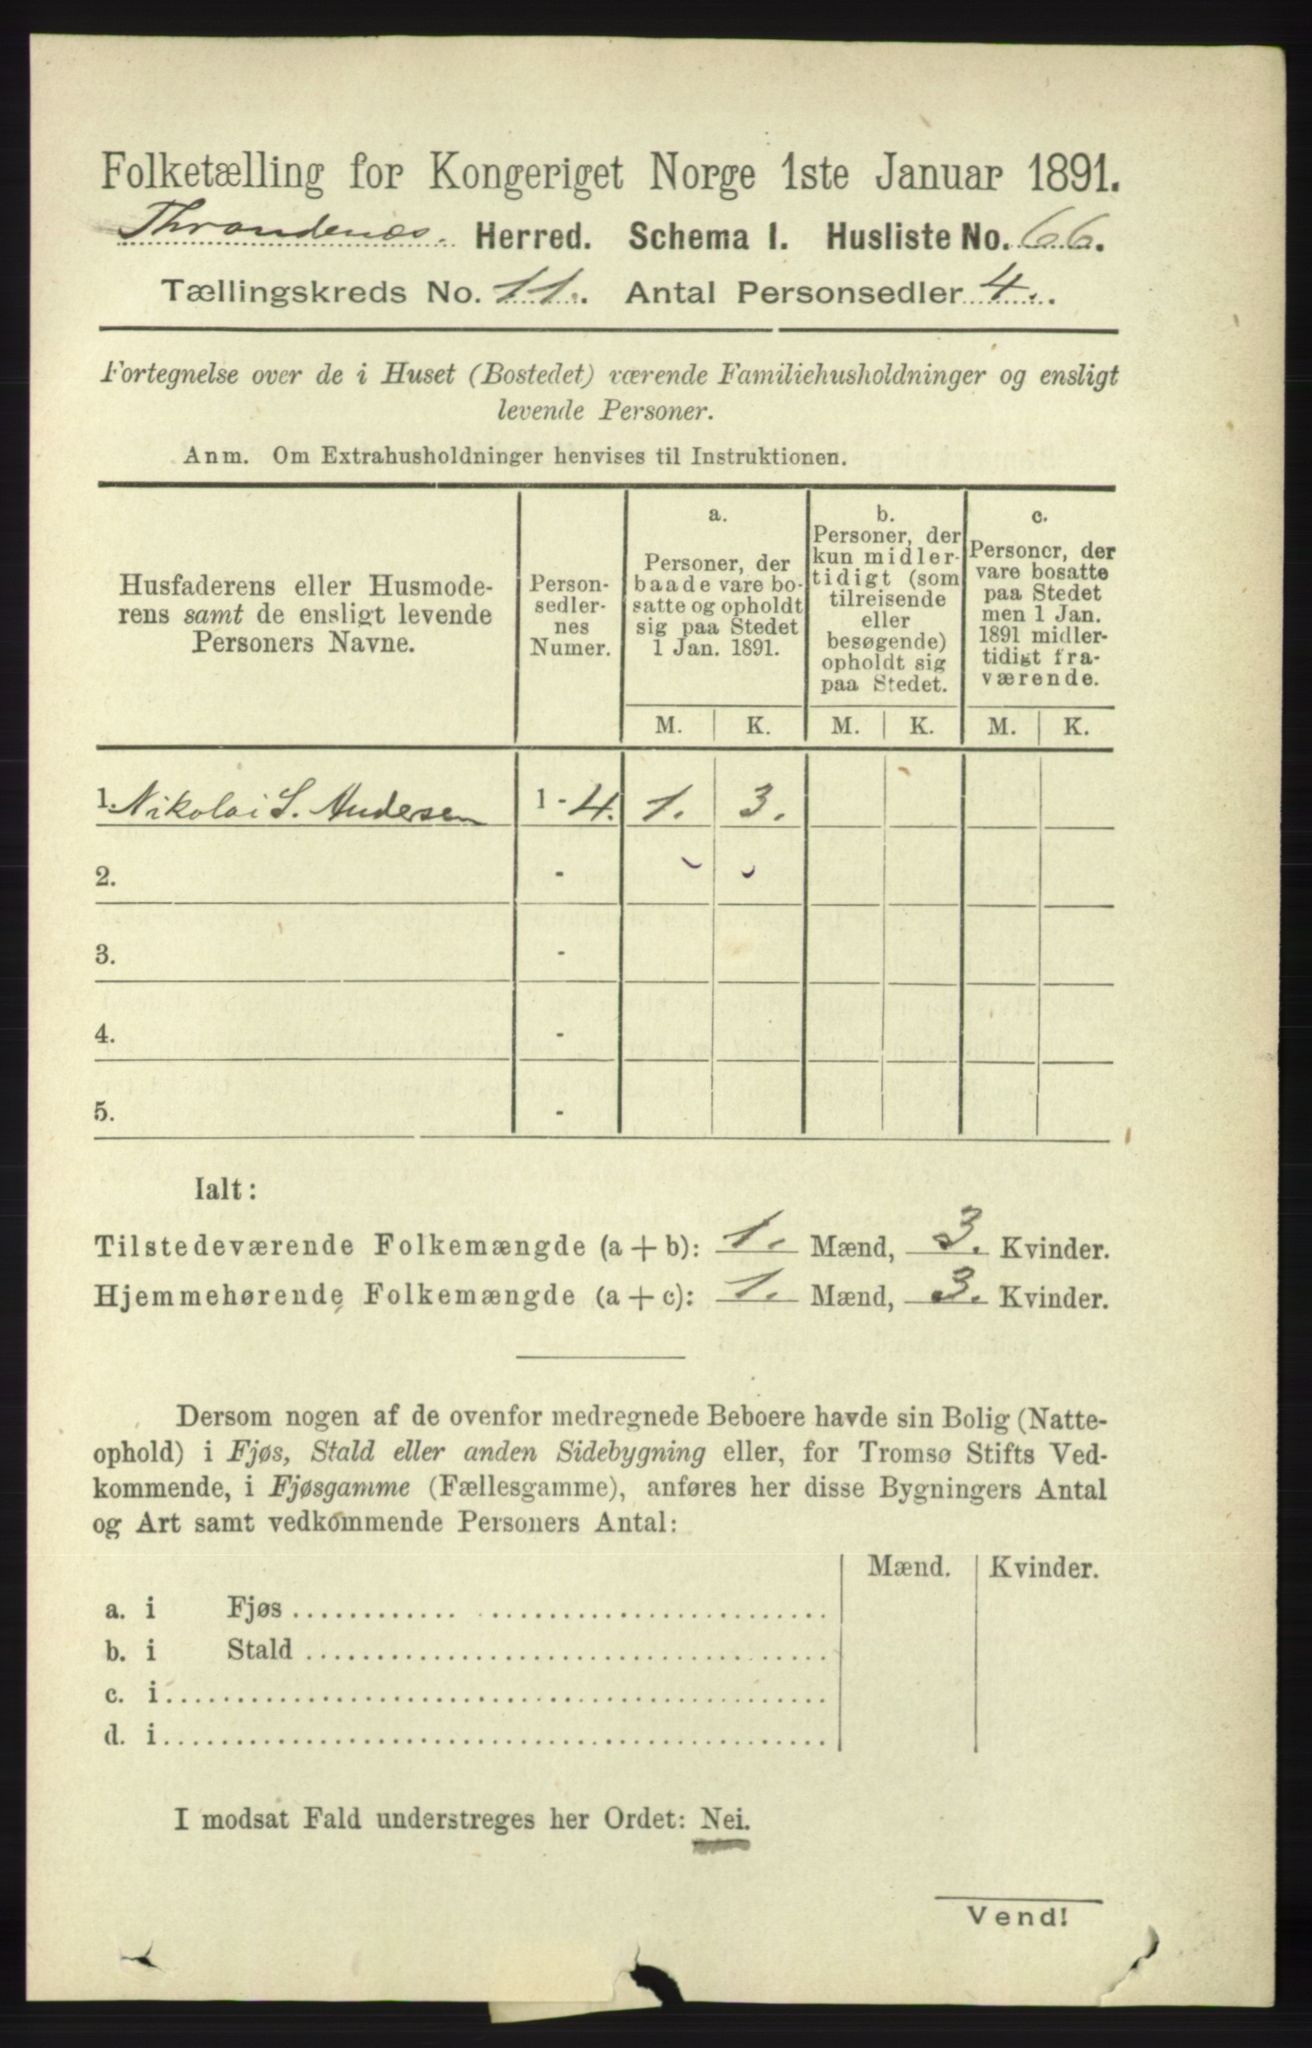 Folketælling for Kongeriget Norge 1ste Januar 1891.
Throndenæs. Herred. Schema I. Husliste No. 66.
Tællingskreds No. 11. Antal Personsedler 4.
Fortegnelse over de i Huset (Bostedet) værende Familiehusholdninger og ensligt
levende Personer.
Anm. Om Extrahusholdninger henvises til Instruktionen.
Husfaderens eller Husmode-
rens samt de ensligt levende
Personers Navne.
Person-
sedler-
nes
Numer.
a.
Personer, der
baade vare bo-
satte og opholdt
sig paa Stedet
1 Jan. 1891.
b.
Personer, der
kun midler-
tidigt (som
tilreisende
eller
besøgende)
opholdt sig
paa Stedet.
c.
Personer, der
vare bosatte
paa Stedet
men 1 Jan.
1891 midler-
tidigt fra-
værende.
M. K. M. K. M. K.
1. Nikolai S. Andersen 1 - 4. 1. 3.
2. -
3. -
4. -
5. -
Ialt:
Tilstedeværende Folkemængde (a + b): 1. Mænd, 3. Kvinder.
Hjemmehørende Folkemængde (a + c): 1. Mænd, 3. Kvinder.
Dersom nogen af de ovenfor medregnede Beboere havde sin Bolig (Natte-
ophold) i Fjøs, Stald eller anden Sidebygning eller, for Tromsø Stifts Ved-
kommende, i Fjøsgamme (Fællesgamme), anføres her disse Bygningers Antal
og Art samt vedkommende Personers Antal:
Mænd. Kvinder.
a. i Fjøs
b. i Stald
c. i
d. i
I modsat Fald understreges her Ordet: Nei.
Vend!